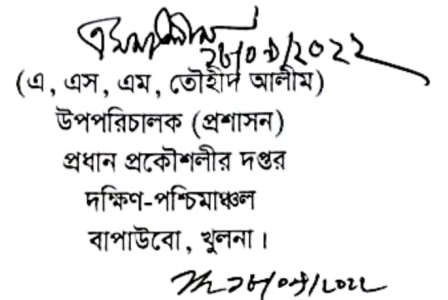 (এ, এস, এম, তৌহীদ আলীম)
উপপরিচালক (প্রশাসন)
প্রধান প্রকৌশলীর দপ্তর
দক্ষিণ-পশ্চিমাঞ্চল
বাপাউবো, খুলনা।